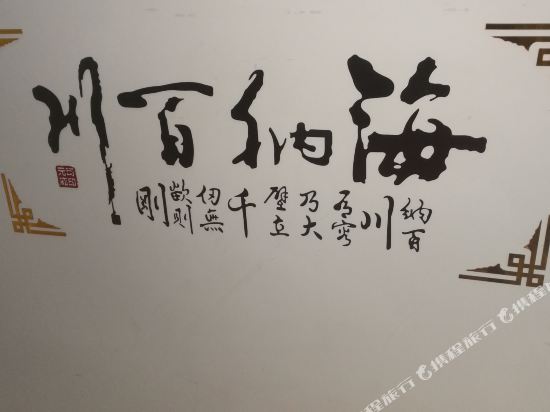 海纳百川
纳百川
有容乃大
壁立千仞無
欲則剛
携程旅行
携程旅行